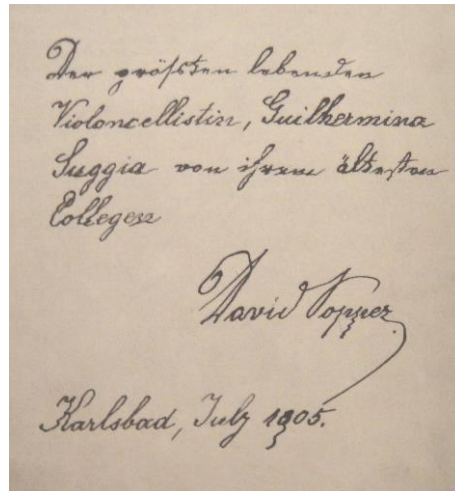 Der größten lebenden
Violoncellistin, Guilhermina
Suggia von ihrem ältesten
Collegen
David Popper.
Karlsbad, July 1905.